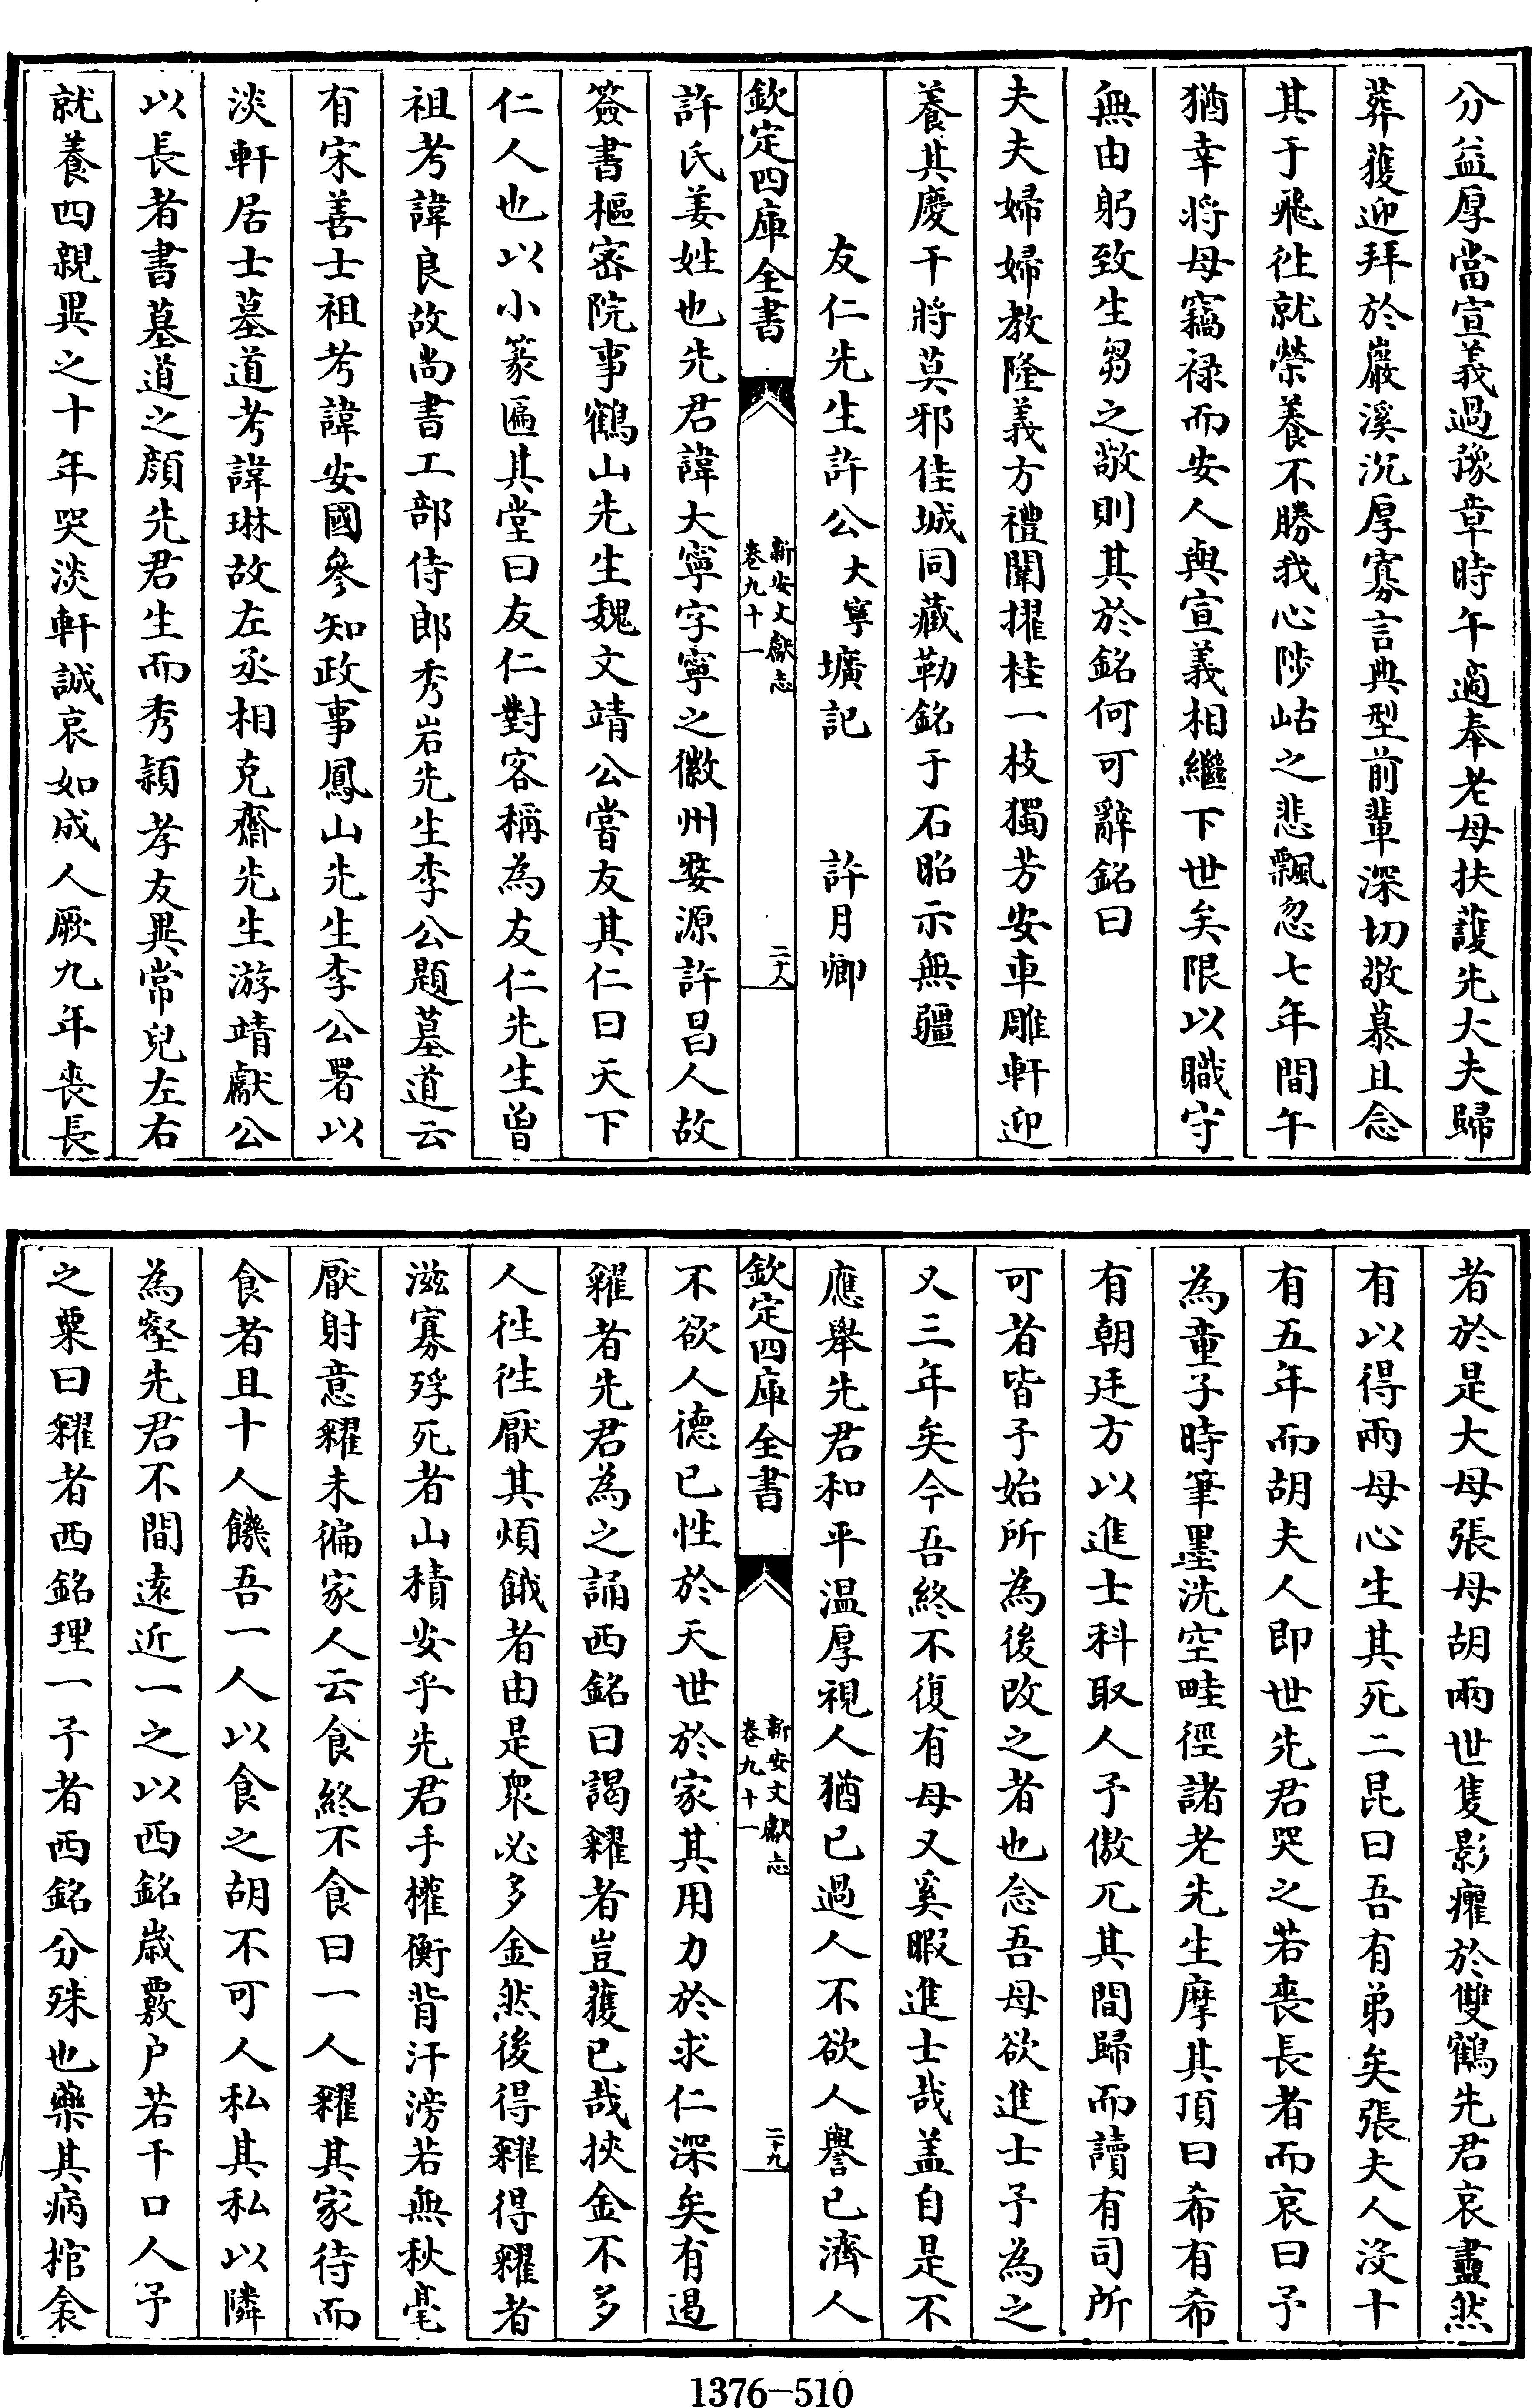 分益厚當宣義過豫章時午適奉老母扶䕶先大夫歸
葬獲迎拜於巖溪沉厚寡言典型前輩深切敬慕且念
其于飛徃就榮養不勝我心陟岵之悲飄忽七年間午
猶幸將母竊祿而安人與宣義相繼下世矣限以職守
無由躬致生芻之敬則其於銘何可辭銘曰
夫夫婦婦教隆義方禮闈擢桂一枝獨芳安車雕軒迎
養其慶干將莫邪佳城同藏勒銘于石昭示無疆
友仁先生許公大寧壙記 許月卿
欽定四庫全書 新安文獻志 卷九十一 二十八
許氏姜姓也先君諱大寧字寧之徽州婺源許昌人故
簽書樞密院事鶴山先生魏文靖公嘗友其仁曰天下
仁人也以小篆匾其堂曰友仁對客稱為友仁先生曾
祖考諱良故尚書工部侍郎秀岩先生李公題墓道云
有宋善士祖考諱安國參知政事鳳山先生李公署以
淡軒居士墓道考諱琳故左丞相克齋先生游靖獻公
以長者書墓道之顏先君生而秀穎孝友異常兒左右
就養四親異之十年哭淡軒誠哀如成人厥九年喪長
者於是大母張母胡兩世隻影癯於雙鶴先君哀盡然
有以得兩母心生其死二昆曰吾有弟矣張夫人沒十
有五年而胡夫人即世先君哭之若喪長者而哀曰予
為童子時筆墨洗空畦徑諸老先生摩其頂曰希有希
有朝廷方以進士科取人予傲兀其間歸而讀有司所
可者皆予始所為後改之者也念吾母欲進士予為之
又三年矣今吾終不復有母又奚暇進士哉盖自是不
應舉先君和平温厚視人猶已過人不欲人譽已濟人
欽定四庫全書 新安文獻志 卷九十一 二十九
不欲人德已性於天世於家其用力於求仁深矣有遏
糴者先君為之誦西銘曰謁糴者豈獲已哉挾金不多
人徃徃厭其煩餓者由是衆必多金然後得糴得糴者
滋寡殍死者山積安乎先君手權衡背汗滂若無秋毫
厭射意糴未徧家人云食終不食曰一人糴其家待而
食者且十人饑吾一人以食之胡不可人私其私以隣
為壑先君不間逺近一之以西銘歲覈户若干口人予
之粟曰糴者西銘理一予者西銘分殊也藥其病棺衾
1376-510